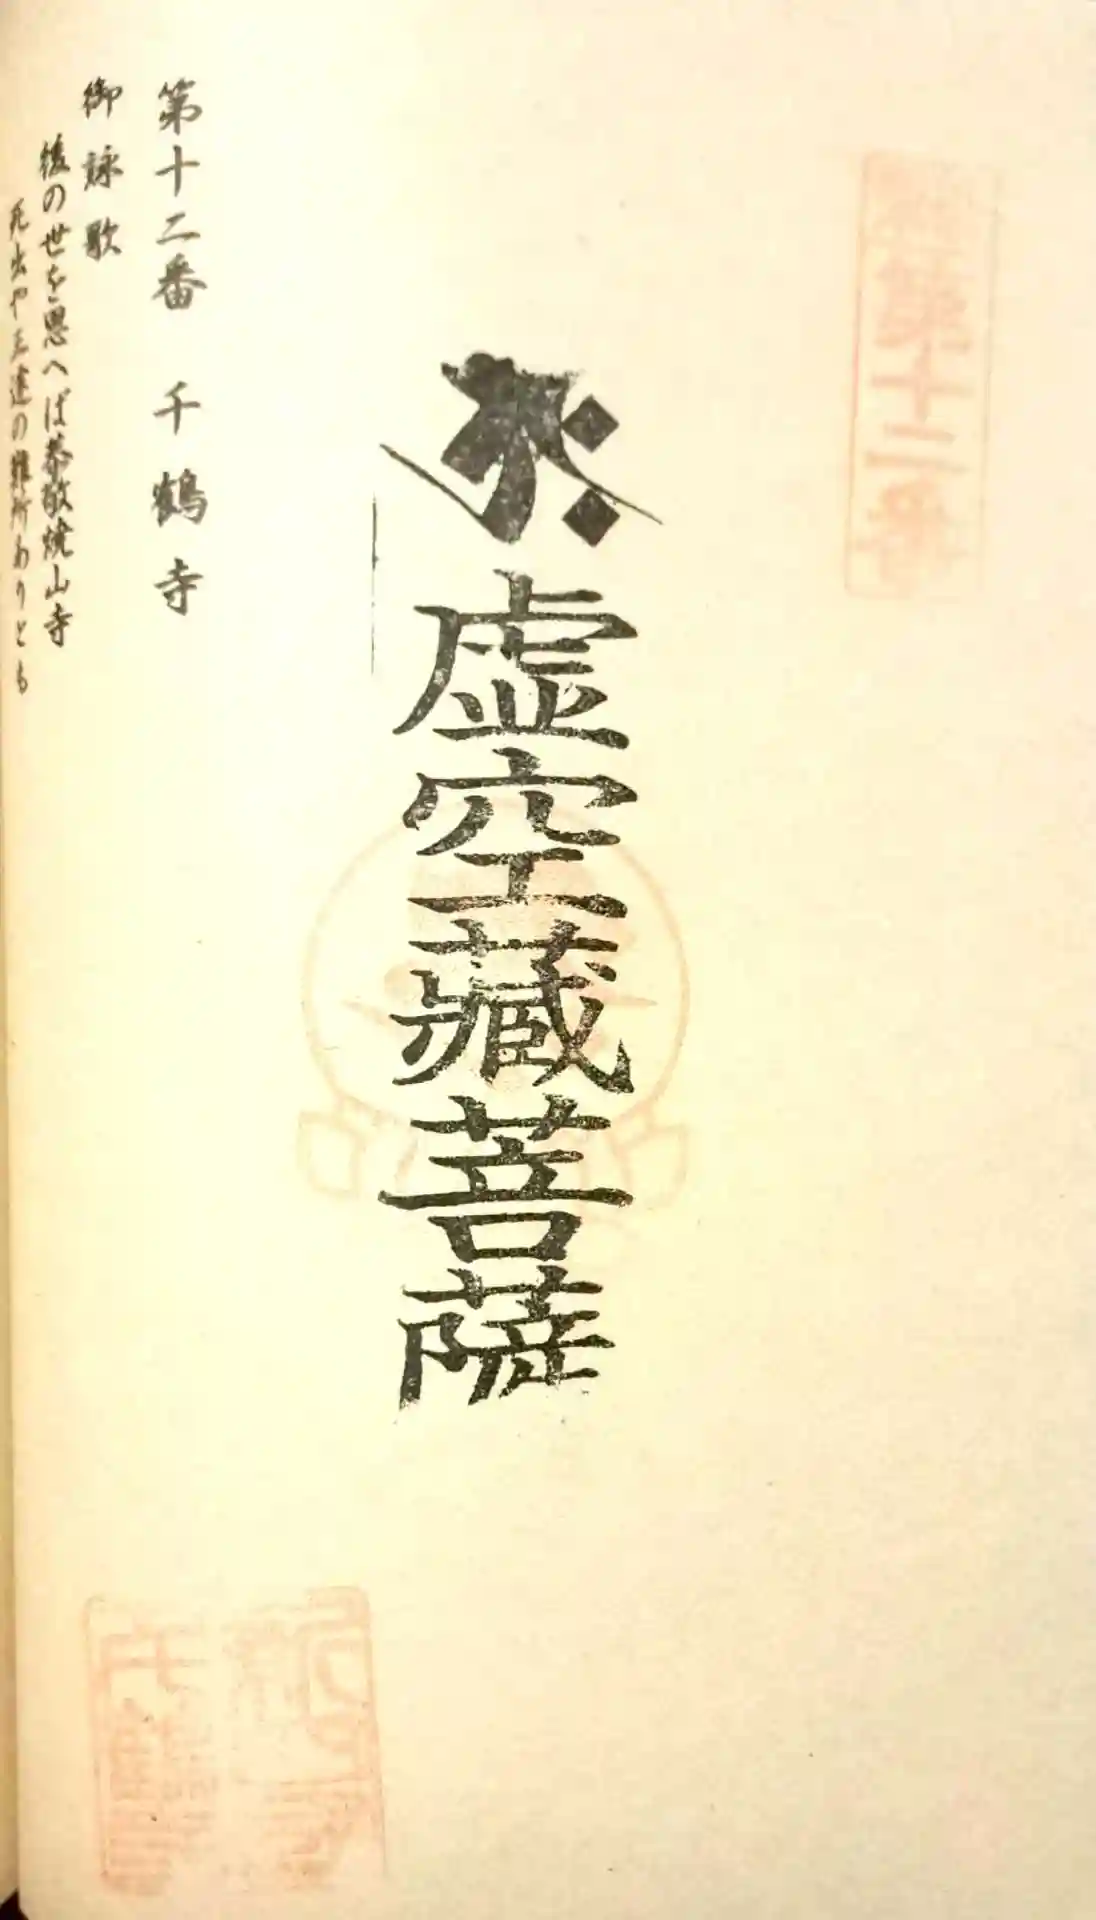 第十二番
虚空藏菩薩
第十二番 千鶴寺
御詠歌
後の世を思へば恭敬焼山寺
死出や三途の難所ありとも